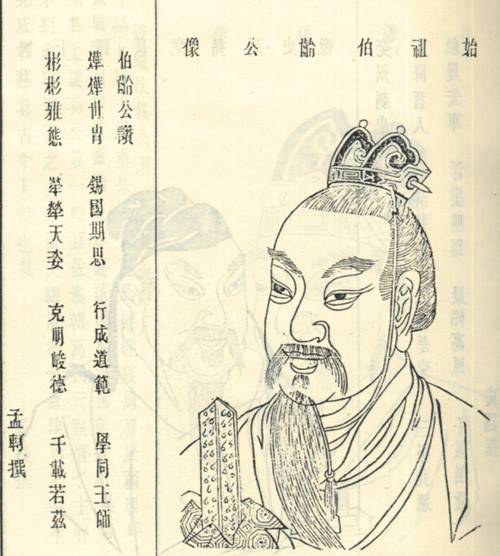 始祖伯齡公像
伯齡公讚
燁燁世胄 錫國期思 行成道範 學同王師
彬彬雅態 犖犖天姿 克明峻德 千載若茲
孟軻撰